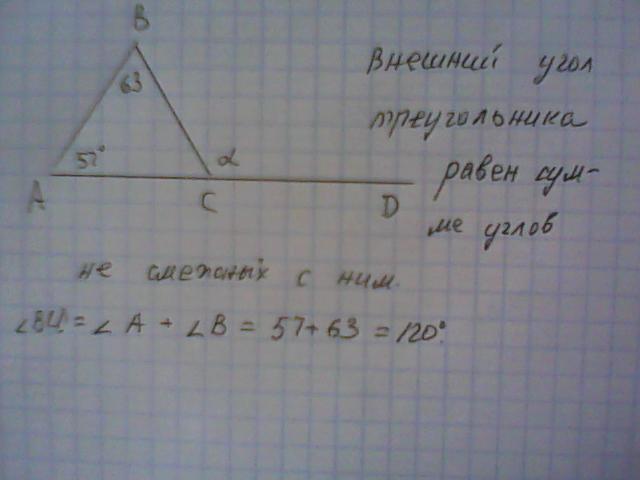 B
63
57°
α
A
C
D
Внешний угол
треугольника
равен сум-
ме углов
не смежных с ним.
= ∠ A + ∠ B = 57 + 63 = 120°.